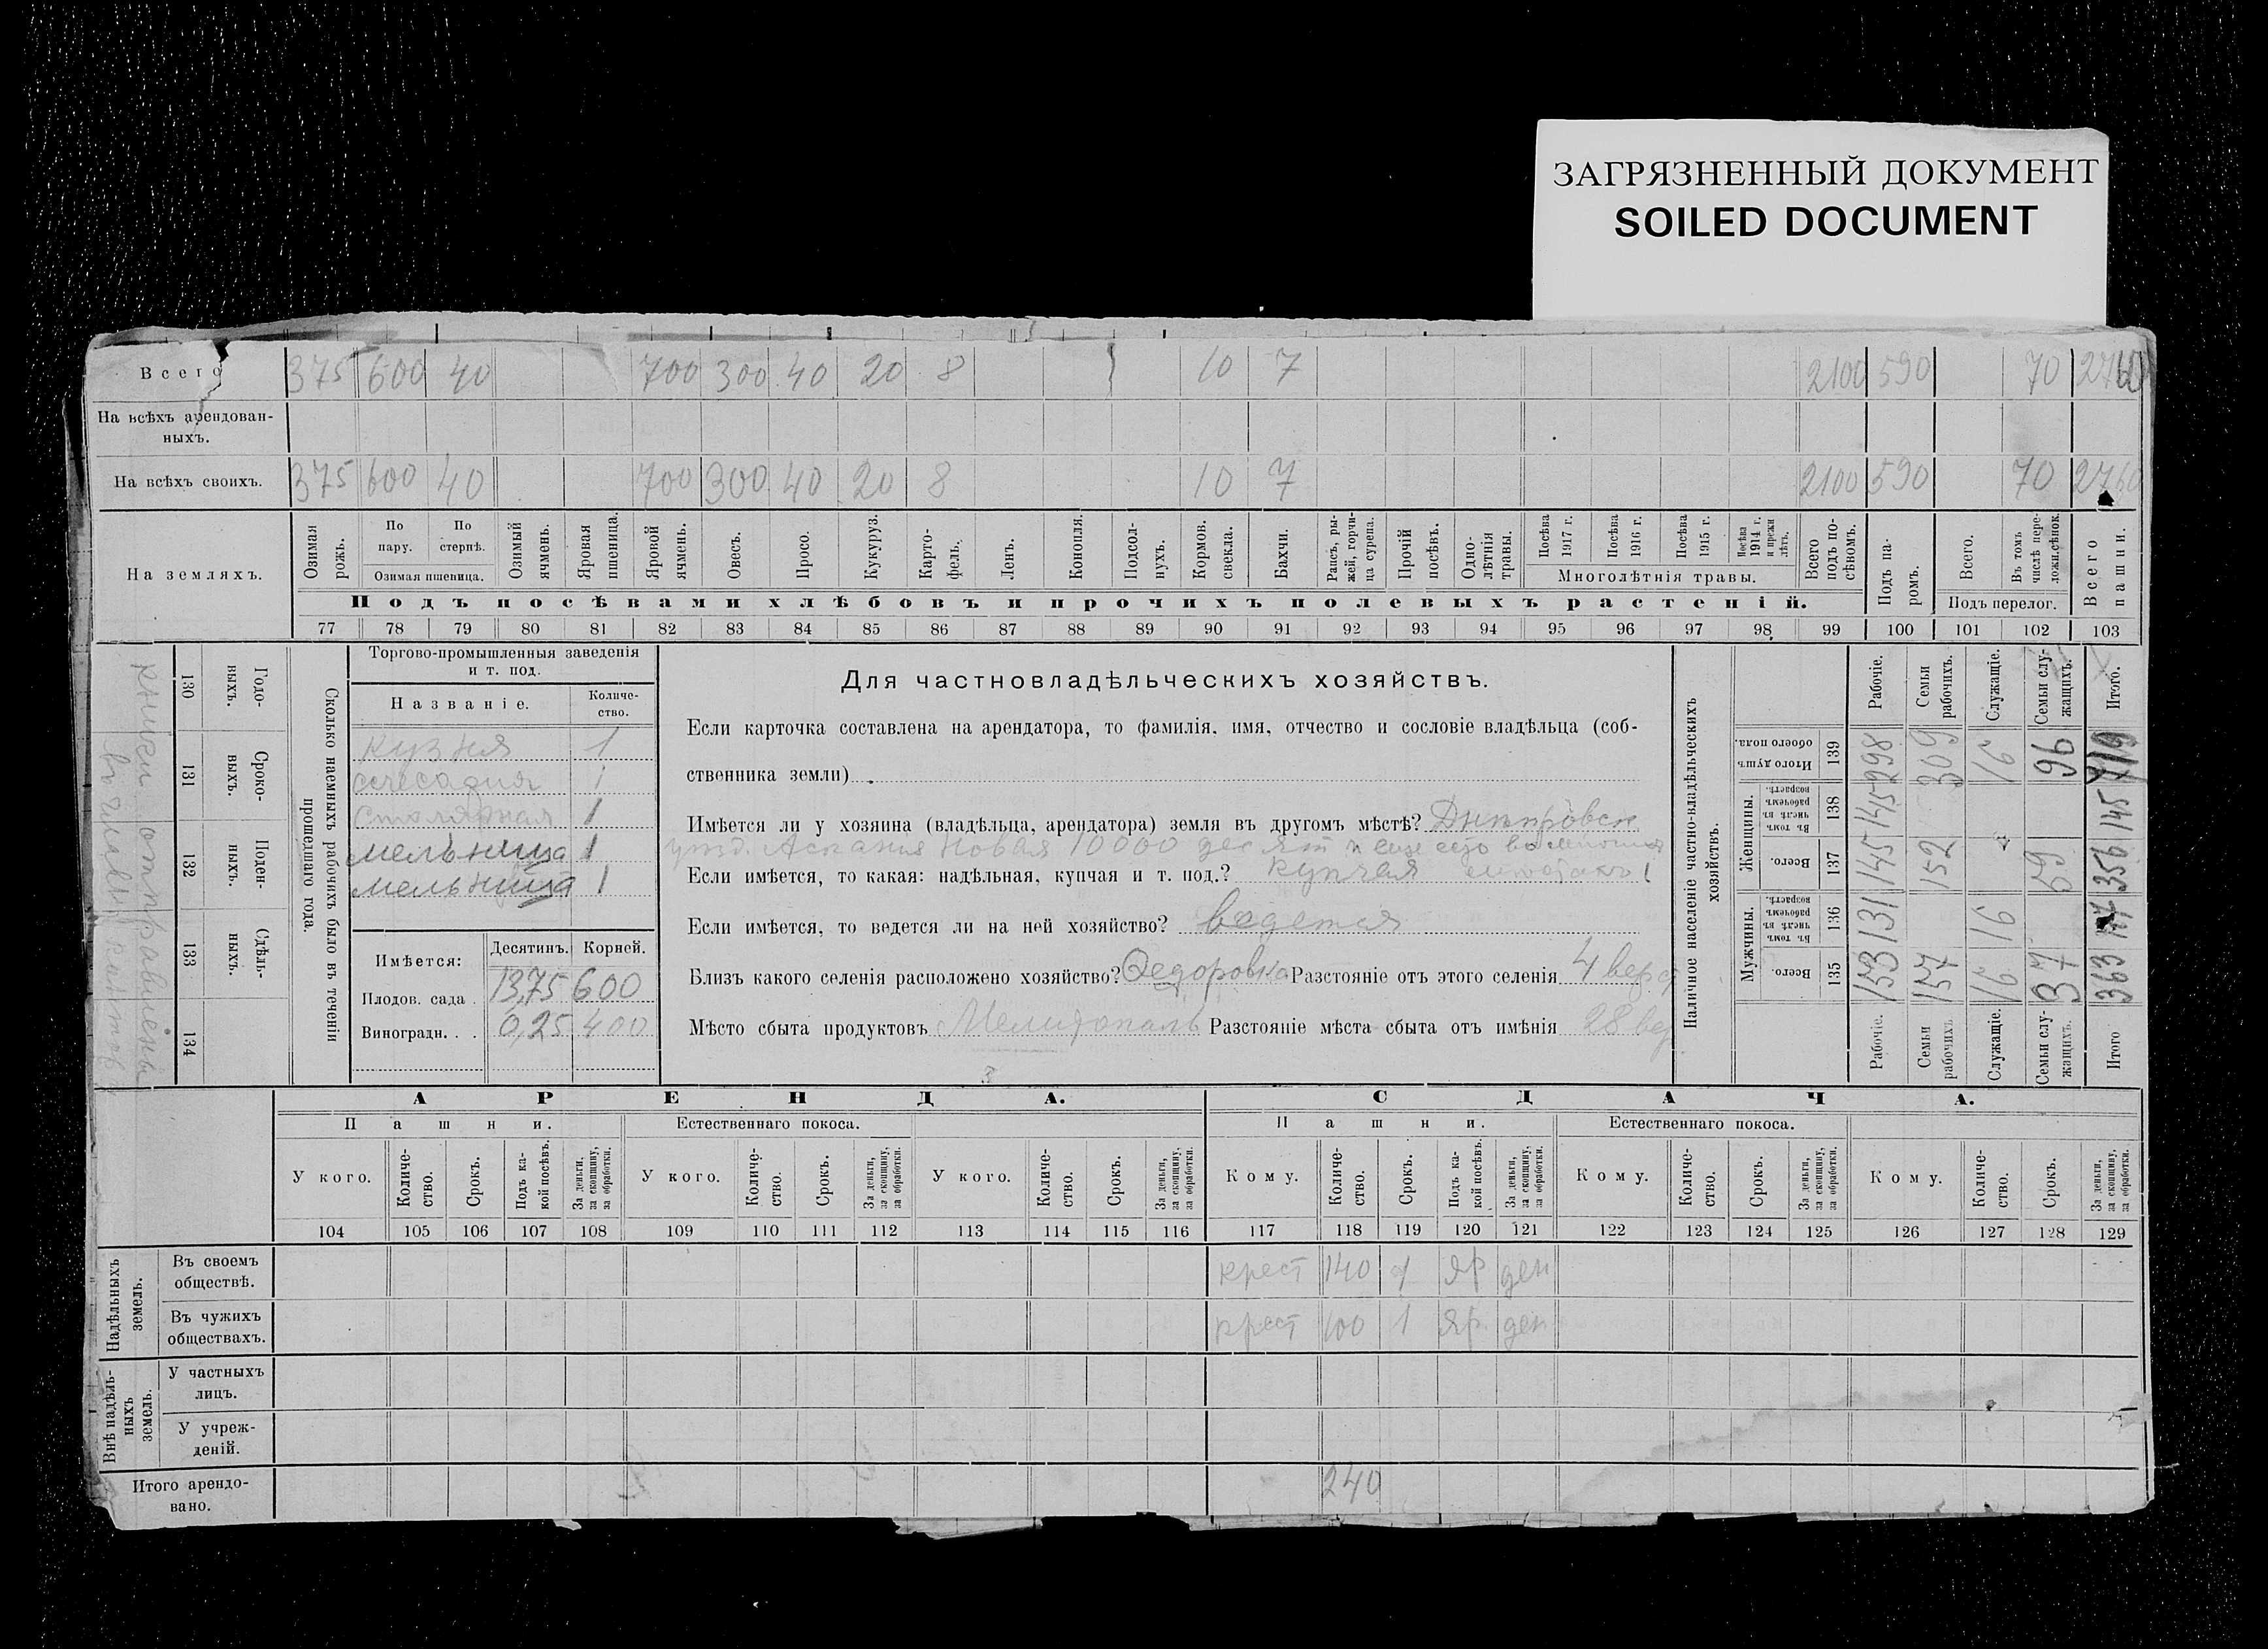 ЗАГРЯЗНЕННЫЙ ДОКУМЕНТ
SOILED DOCUMENT
Всего 375 600 40 700 300 40 20 8 10 7 2100 590 70 2760
На всѣхъ арендован-
ныхъ.
На всѣхъ своихъ. 375 600 40 700 300 40 20 8 10 7 2100 590 70 2760
На земляхъ.
Озимая рожь.
По пару.
По стернѣ.
Озимая пшеница.
Озимый ячмень.
Яровая пшеница.
Яровой ячмень.
Овесъ.
Просо.
Кукуруз.
Карто-
фель.
Ленъ.
Конопля.
Подсол-
нухъ.
Кормов.
свекла.
Бахчи.
Рапсъ, ры-
жей, горчи-
ца сурепа.
Прочій посѣвъ.
Одно-
лѣтнія травы.
Посѣва 1917 г.
Посѣва 1916 г.
Посѣва 1915 г.
Посѣва 1914 г. и прежн лѣтъ.
Многолѣтнія травы.
Всего подъ по-
сѣвомъ.
Подъ посѣвами хлѣбовъ и прочихъ полевыхъ растеній.
Подъ па-
ромъ.
Всего.
Въ томъ числѣ пере-
лож. сѣнок.
Подъ перелог.
Всего пашни.
77 78 79 80 81 82 83 84 85 86 87 88 89 90 91 92 93 94 95 96 97 98 99 100 101 102 103
книжки отправлены
Годо-
выхъ.
Сроко-
выхъ.
Поден-
ныхъ.
Сдѣль-
ныхъ.
130 131 132 133 134
Сколько наемныхъ рабочихъ было въ теченіи
прошедшаго года.
Торгово-промышленныя заведенія
и т. под.
Названіе. Количе-
ство.
кузня 1
слесарня 1
столярная 1
мельница 1
мельница 1
Имѣется: Десятинъ. Корней.
Плодов. сада . 13,75 600
Виноградн. . . 0,25 400
Для частновладѣльческихъ хозяйствъ.
Если карточка составлена на арендатора, то фамилія, имя, отчество и сословіе владѣльца (соб-
ственника земли)
Имѣется ли у хозяина (владѣльца, арендатора) земля въ другомъ мѣстѣ? Днѣпровск
уѣзд. Аскания Новая 10000 десят и еще
Если имѣется, то какая: надѣльная, купчая и т. под.? купчая
Если имѣется, то ведется ли на ней хозяйство? ведется
Близъ какого селенія расположено хозяйство? Федоровка Разстояніе отъ этого селенія 4 вер
Мѣсто сбыта продуктовъ Мелитополь Разстояніе мѣста сбыта отъ имѣнія 28 вер
Наличное населеніе частно-владѣльческихъ
хозяйствъ.
Рабочіе.
Семьи рабочихъ.
Служащіе.
Семьи слу-
жащихъ.
Итого.
Итого душъ обоего пола. 139 298 309 16 96 719
Женщины.
Въ томъ числѣ въ рабочемъ возрастѣ. 138 145 145
Всего. 137 145 152 59 356
Мужчины.
Въ томъ числѣ въ рабочемъ возрастѣ. 136 131 16 147
Всего. 135 153 157 16 37 363
Рабочіе.
Семьи рабочихъ
Служащіе.
Семьи слу-
жащихъ.
Итого
АРЕНДА. СДАЧА.
Пашни. Естественнаго покоса. Пашни. Естественнаго покоса.
У кого. Количе-
ство. Срокъ. Подъ ка-
кой посѣвъ. За деньги, за скопщину, за обработки. У кого. Количе-
ство. Срокъ. За деньги, за скопщину, за обработки. У кого. Количе-
ство. Срокъ. За деньги, за скопщину, за обработки. Кому. Количе-
ство. Срокъ. Подъ ка-
кой посѣвъ. За деньги, за скопщину, за обработки. Кому. Количе-
ство. Срокъ. За деньги, за скопщину, за обработки. Кому. Количе-
ство. Срокъ. За деньги, за скопщину, за обработки.
104 105 106 107 108 109 110 111 112 113 114 115 116 117 118 119 120 121 122 123 124 125 126 127 128 129
Надѣльныхъ земель.
Въ своемъ
обществѣ. крест 140 1 яр ден
Въ чужихъ
обществахъ. крест 100 1 яр. ден
Внѣ надѣль-
ныхъ земель.
У частныхъ
лицъ.
У учреж-
деній.
Итого арендо-
вано. 240